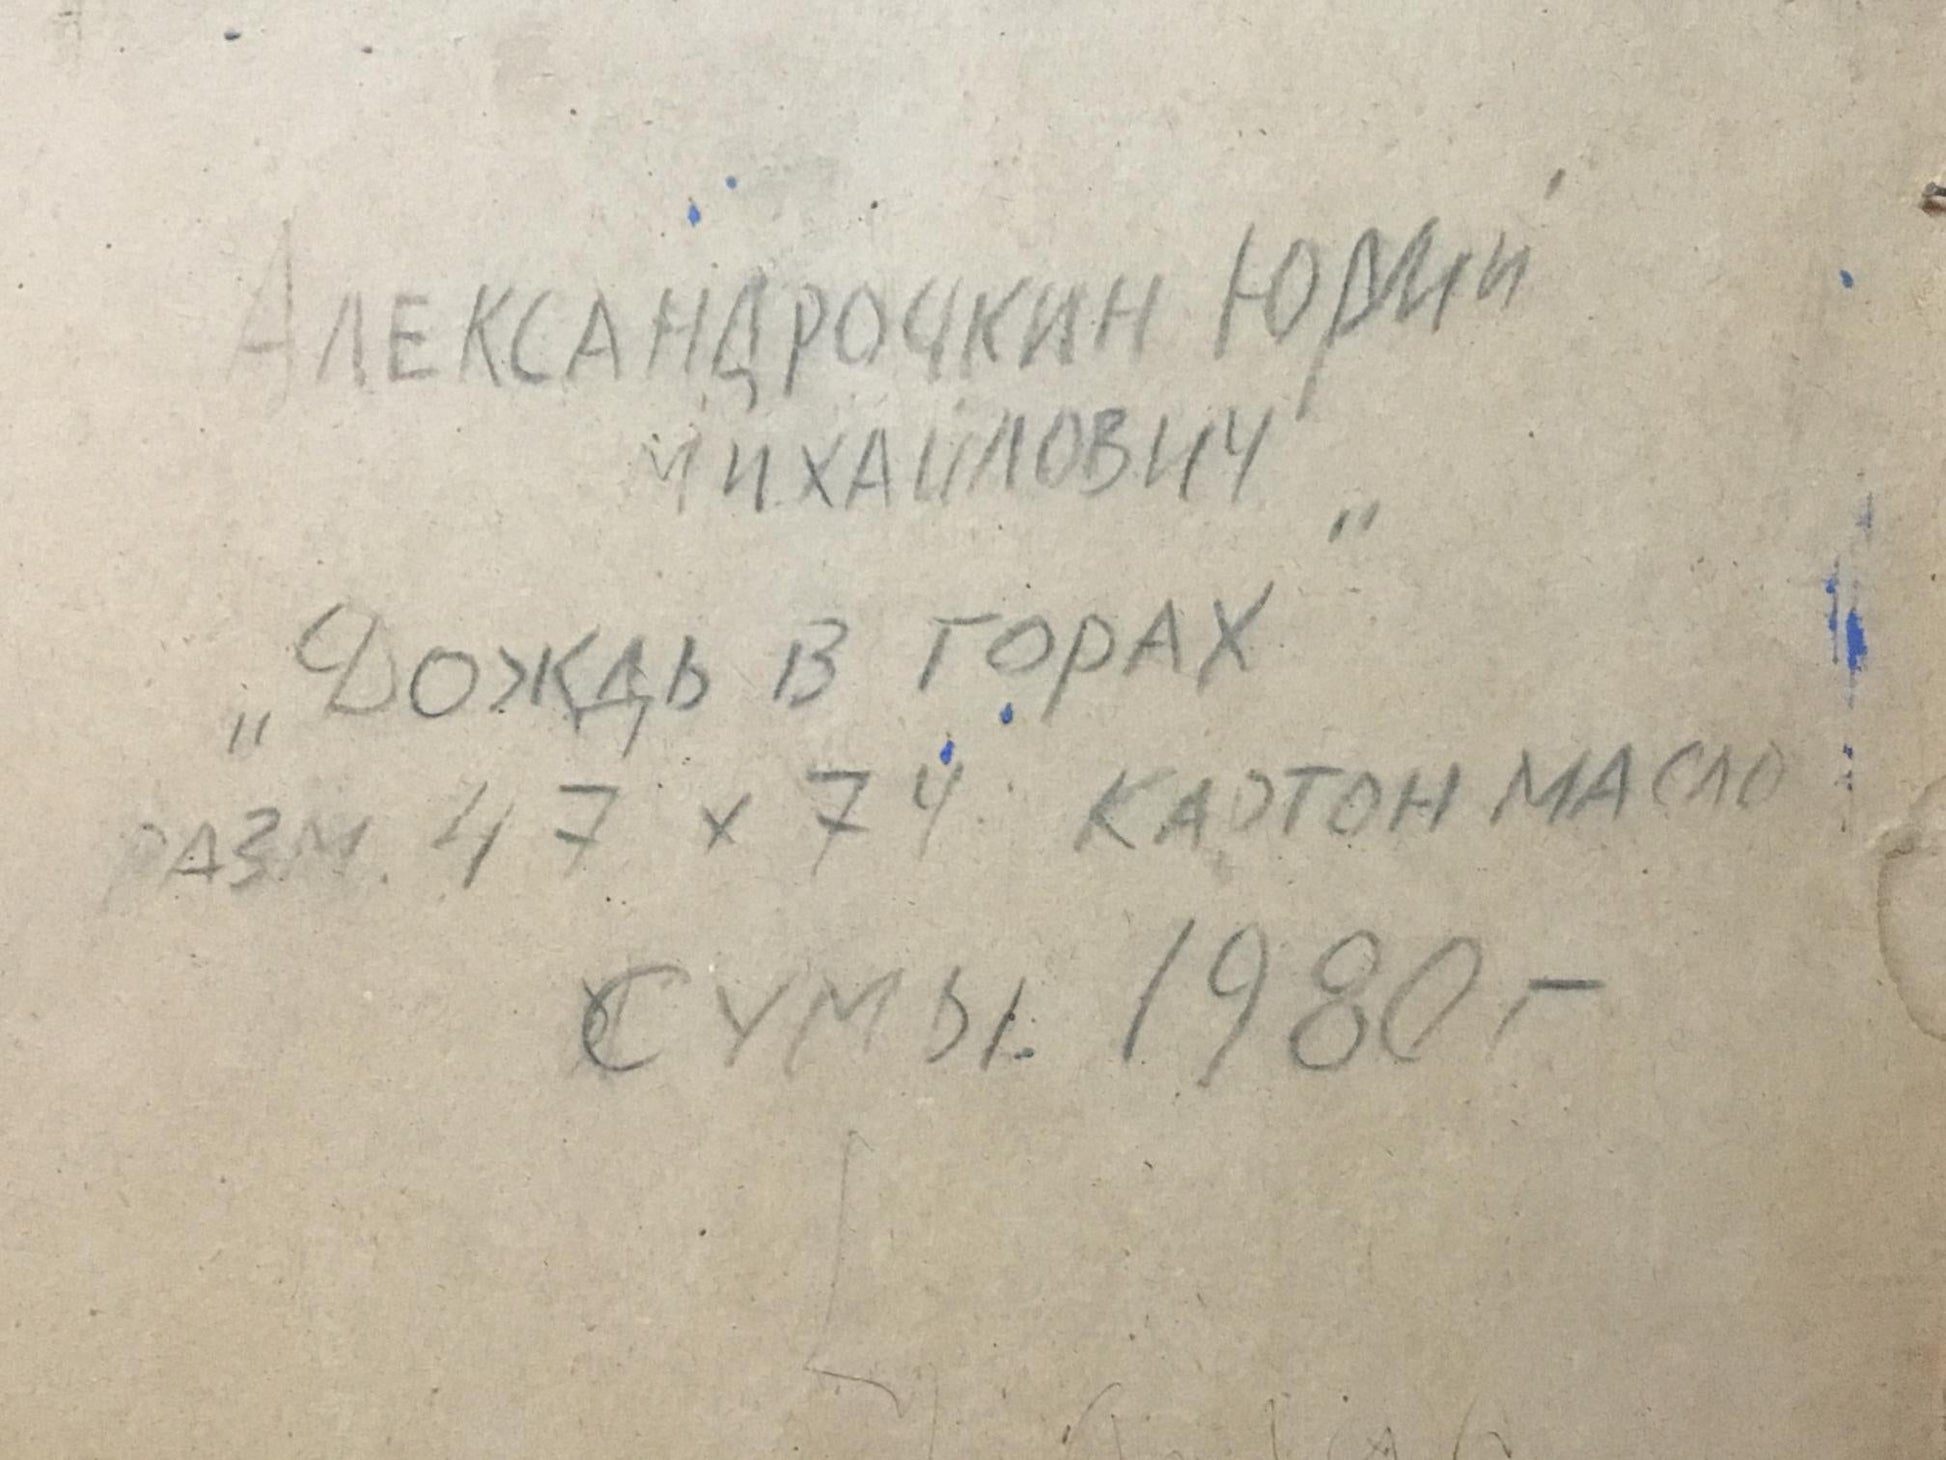 Александрочкин Юрий
Михайлович
„Дождь в горах"
разм. 47 х 74 картон масло
Сумы 1980 г